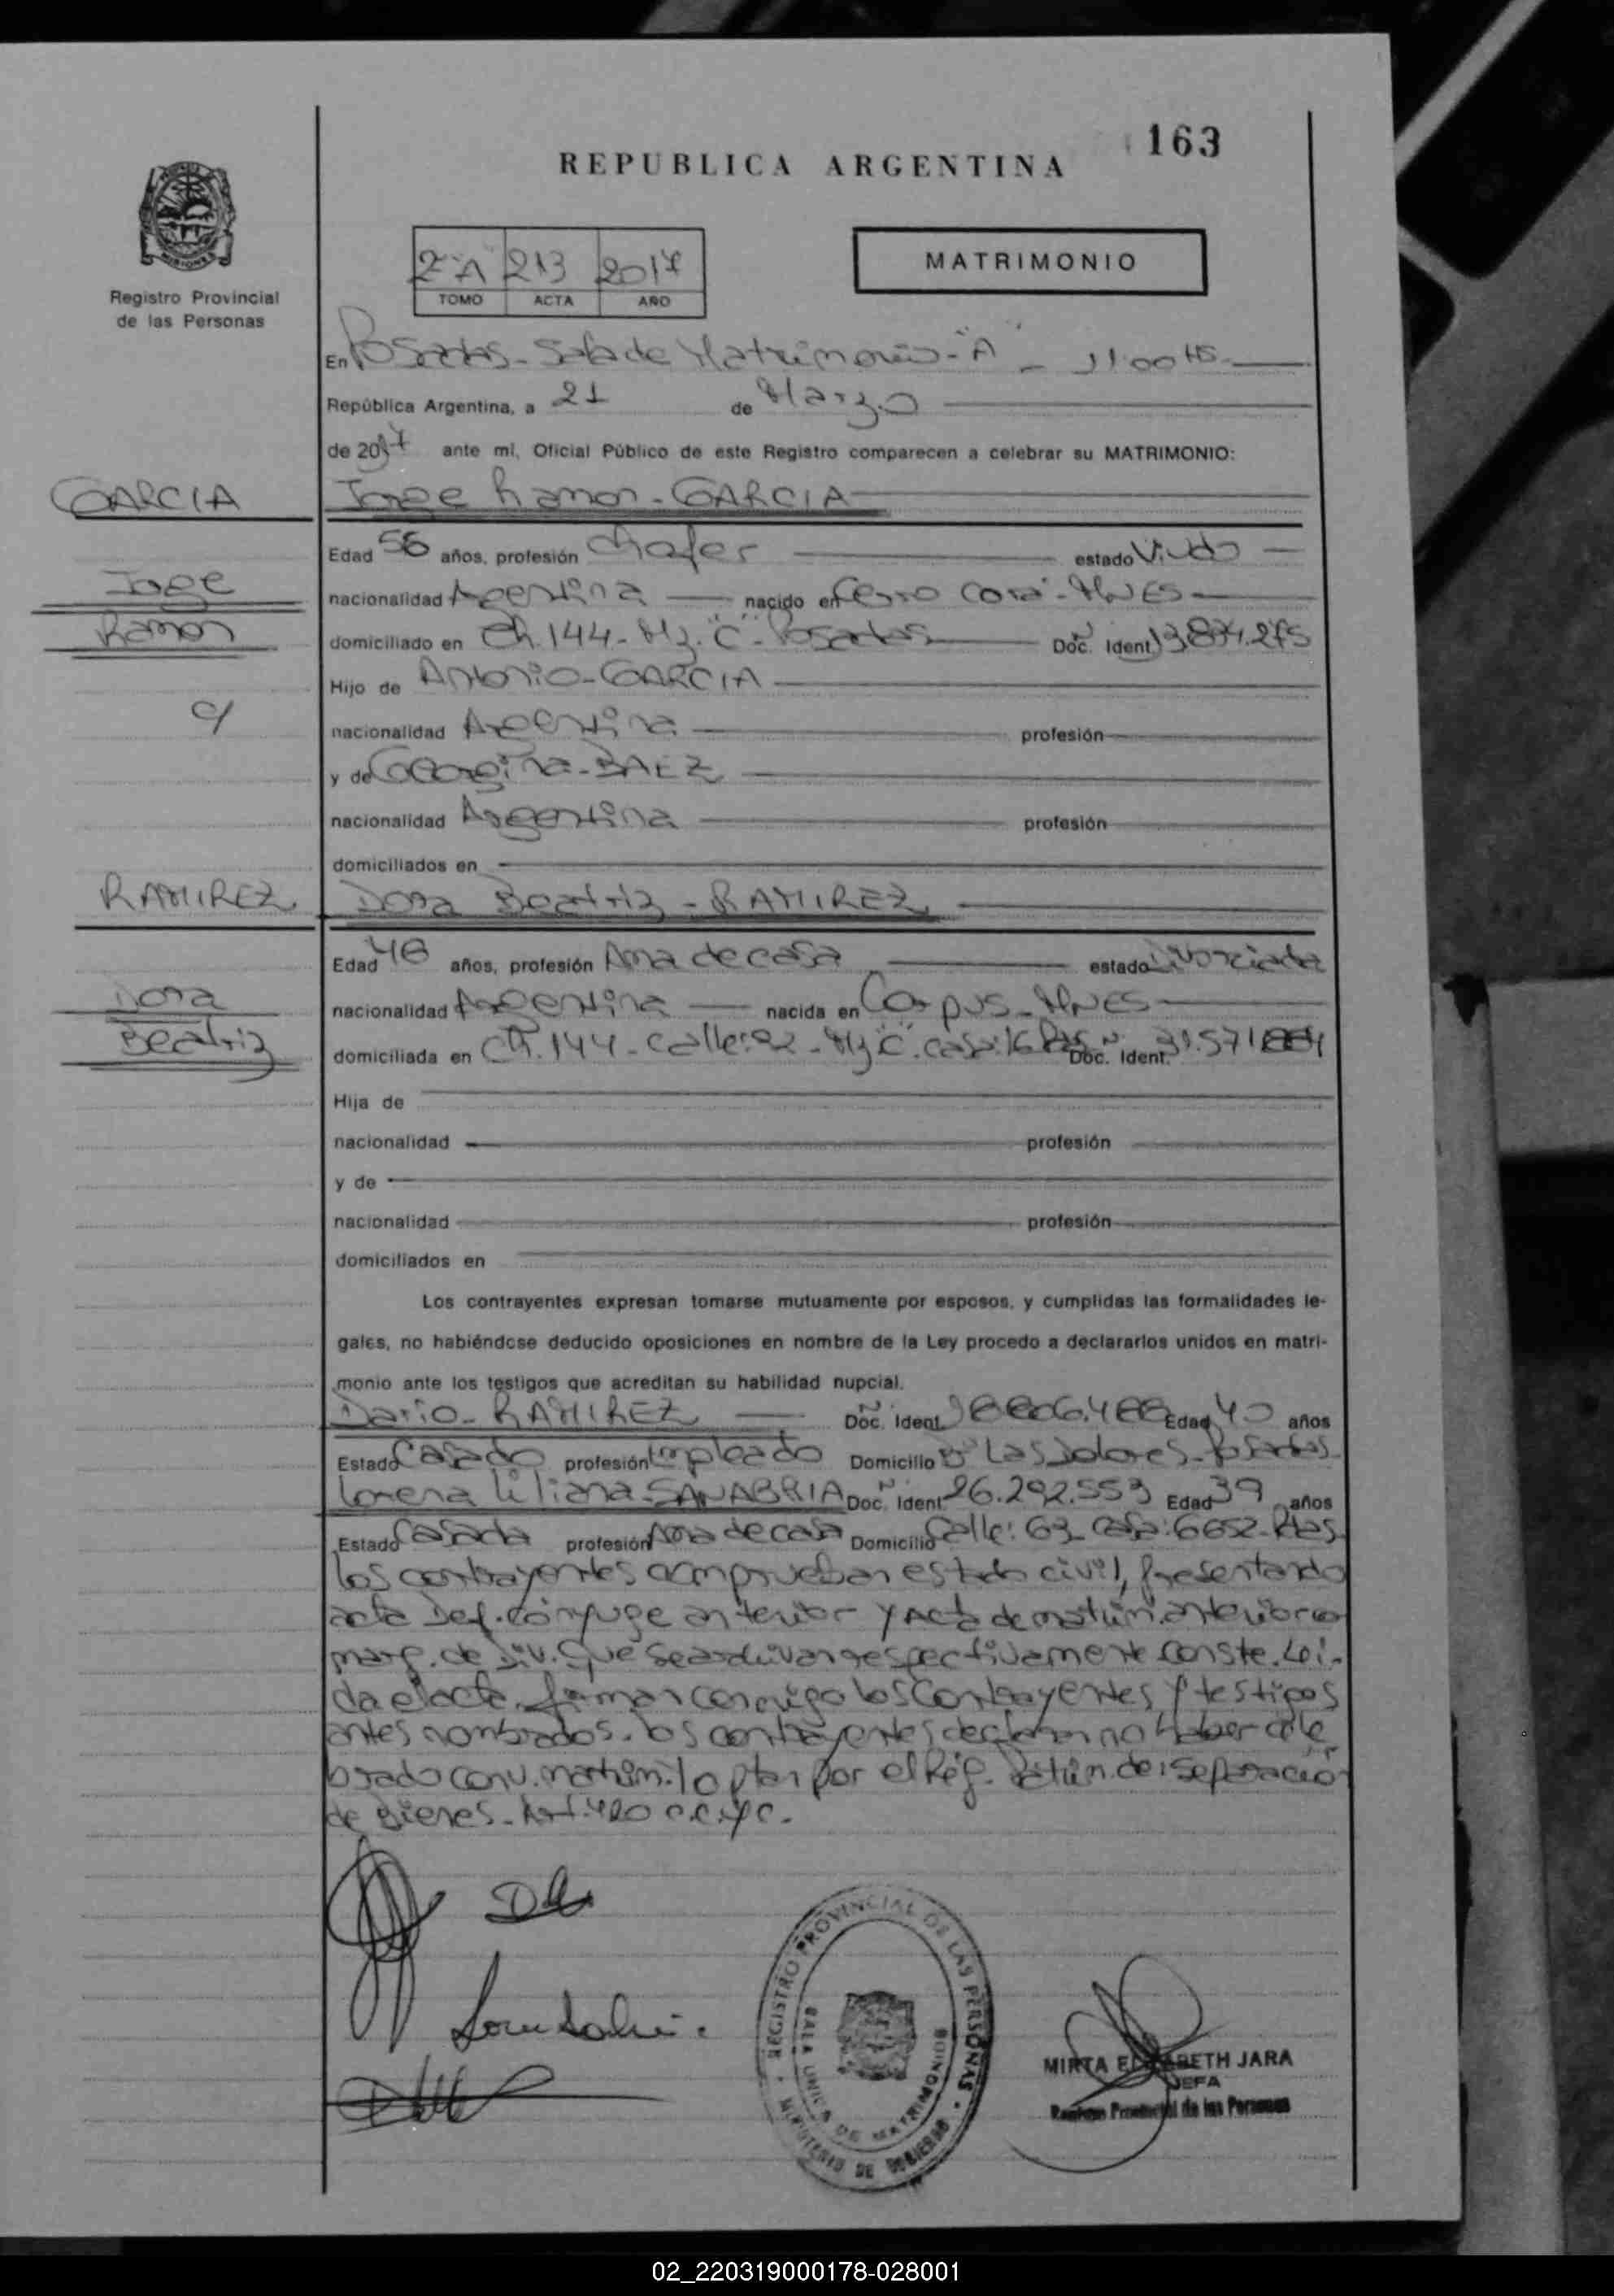 163
REPUBLICA ARGENTINA
Registro Provincial
de las Personas
2º"A" 213 2017
TOMO ACTA AÑO
MATRIMONIO
En Posadas - Sala de Matrimonio - "A" - 11:00 HS.
República Argentina, a 21 de Marzo
de 2017 ante mi, Oficial Público de este Registro comparecen a celebrar su MATRIMONIO:
GARCIA
Jorge Ramon - GARCIA
Edad 56 años, profesión Chofer estado Viudo
Jorge
nacionalidad Argentina nacido en Cerro Corá - MNES
Ramon
domiciliado en Ch. 144 - Mz. "C" - Posadas Doc. Ident. 13.874.275
Hijo de Antonio - GARCIA
c/
nacionalidad Argentina profesión
y de Georgina - BAEZ
nacionalidad Argentina profesión
domiciliados en
RAMIREZ
Dora Beatriz - RAMIREZ
Edad 46 años, profesión Ama de casa estado Divorciada
Dora
nacionalidad Argentina nacida en Corpus - MNES
Beatriz
domiciliada en Ch. 144 - Calle: 92 - Mz "C". casa: 16 Doc. Ident. 31.571
Hija de
nacionalidad profesión
y de
nacionalidad profesión
domiciliados en
Los contrayentes expresan tomarse mutuamente por esposos, y cumplidas las formalidades le-
gales, no habiéndose deducido oposiciones en nombre de la Ley procedo a declararlos unidos en matri-
monio ante los testigos que acreditan su habilidad nupcial.
Dario - RAMIREZ Doc. Ident. Edad 40 años
Estado Casado profesión Empleado Domicilio Bº Las Dolores - Posadas
Lorena Liliana - SANABRIA Doc. Ident. 26.292.553 Edad 39 años
Estado Casada profesión Ama de casa Domicilio Calle: 63 - Casa: 6652 - Pdas.
Los contrayentes comprueban estado civil, presentando
acta Def. cónyuge anterior y Acta de matrim. anterior co
marg. de Div. Que se archivan respectivamente conste. Lei-
da el acta, firman conmigo los Contrayentes y testigos
antes nombrados. Los contrayentes declaran no haber cele
brado conv. matrim. y optan por el Rég. Patrim. de: Separación
de Bienes - Art. 420 c.c.yc.
REGISTRO PROVINCIAL DE LAS PERSONAS
SALA UNICA DE MATRIMONIOS
MINISTERIO DE GOBIERNO
MIRTA ELIZABETH JARA
JEFA
Registro Provincial de las Personas
02_220319000178-028001